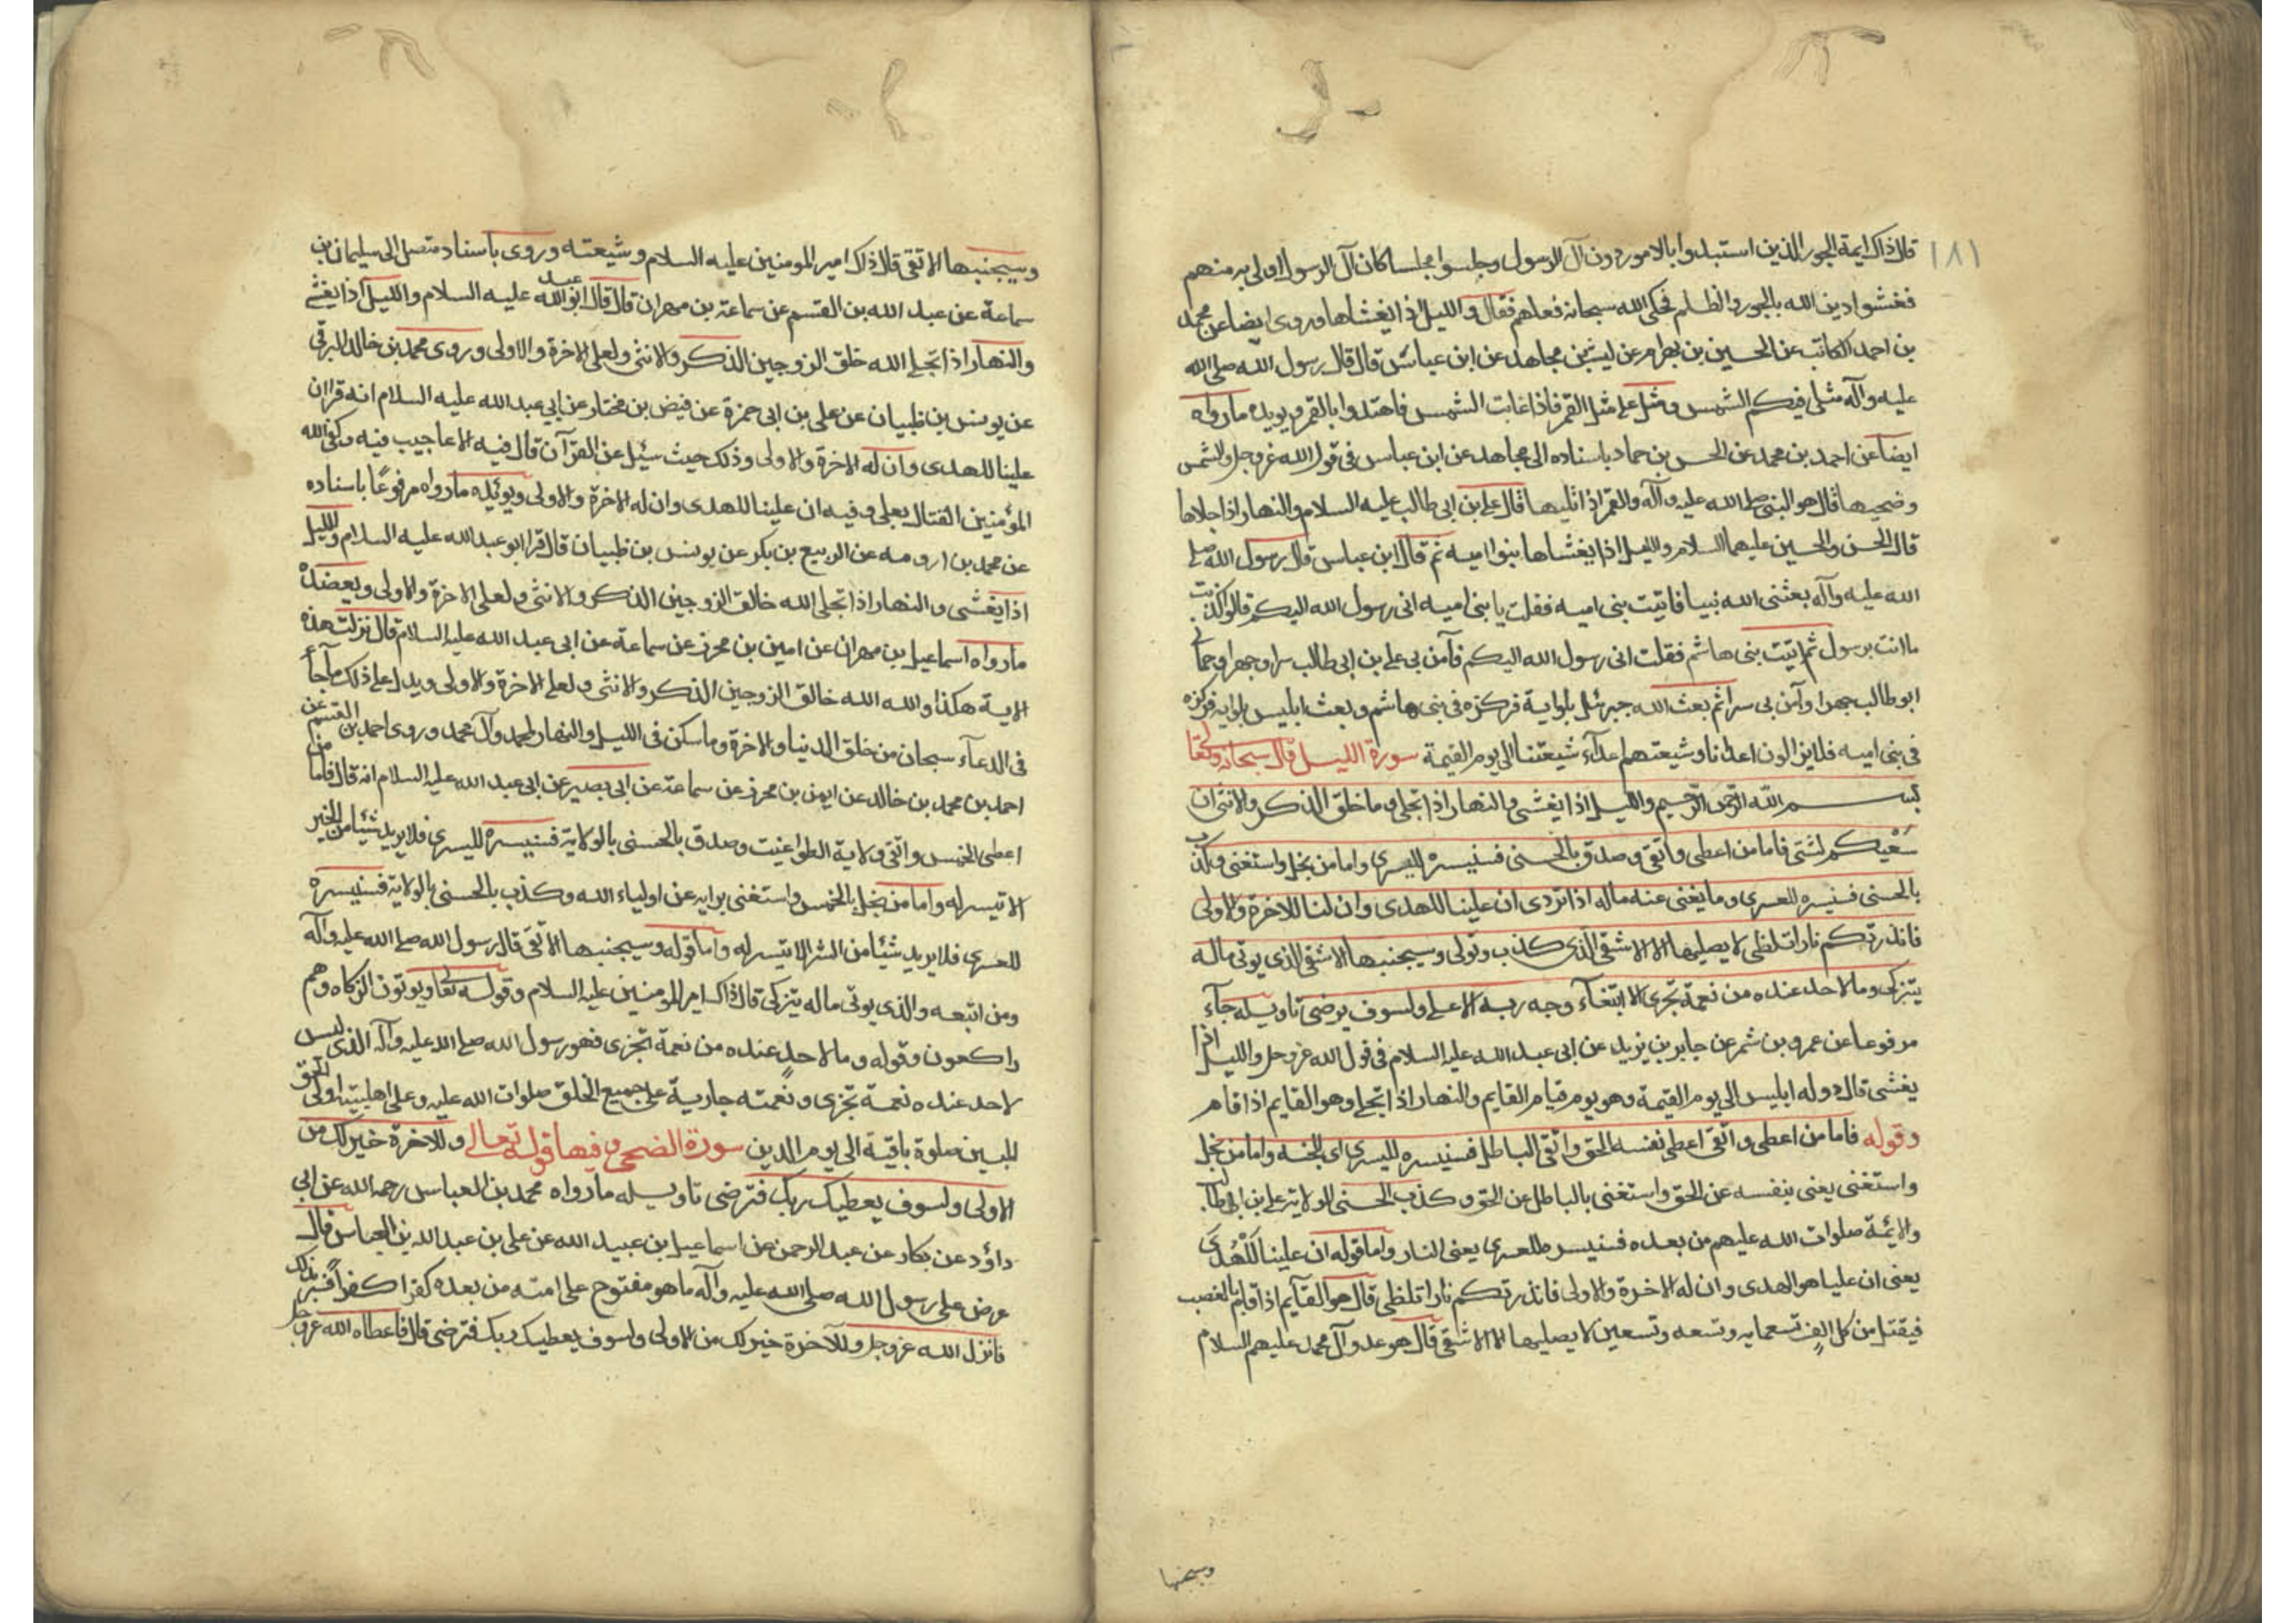 ١٨١
قال ذاك ايمة الجور الذين استبدوا بالامور دون آل الرسول وجلسوا مجلسا كان آل الرسول اولى به منهم
فغشوا دين الله بالجور والظلم فحكى الله سبحانه فعلهم فقال والليل اذا يغشاها وروى ايضا عن محمد
بن احمد الكاتب عن الحسين بن بهرام عن ليث عن مجاهد عن ابن عباس قال قال رسول الله صلى الله
عليه وآله مثلى فيكم الشمس ومثل على مثل القمر فاذا غابت الشمس فاهتدوا بالقمر ويويده ما رواه
ايضا عن احمد بن محمد عن الحسن بن حماد باسناده الى مجاهد عن ابن عباس فى قول الله عز وجل والشمس
وضحيها قال هو النبى صلى الله عليه وآله والقمر اذا تليها قال على بن ابى طالب عليه السلام والنهار اذا جلاها
قال الحسن والحسين عليهما السلام والليل اذا يغشاها بنوا اميه ثم قال ابن عباس قال رسول الله صلى
الله عليه وآله بعثنى الله نبيا فاتيت بنى اميه فقلت يا بنى اميه انى رسول الله اليكم قالوا كذبت
ما انت برسول ثم اتيت بنى هاشم فقلت انى رسول الله اليكم فآمن بى على بن ابى طالب سرا وجهرا وحمانى
ابو طالب جهرا وآمن بى سرا ثم بعث الله جبرئيل بلوايه فركزه فى بنى هاشم وبعث ابليس بلوايه فركزه
فى بنى اميه فلا يزالون اعداءنا وشيعتهم اعداء شيعتنا الى يوم القيمة سورة الليل قال سبحانه وتعا
بسم الله الرحمن الرحيم والليل اذا يغشى والنهار اذا تجلى وما خلق الذكر والانثى ان
سعيكم لشتى فاما من اعطى واتقى وصدق بالحسنى فسنيسره لليسرى واما من بخل واستغنى وكذب
بالحسنى فسنيسره للعسرى وما يغنى عنه ماله اذا تردى ان علينا للهدى وان لنا للاخرة والاولى
فانذرتكم نارا تلظى لا يصليها الا الاشقى الذى كذب وتولى وسيجنبها الاشقى الذى يوتى ماله
يتزكى وما لاحد عنده من نعمة تجزى الا ابتغاء وجه ربه الاعلى ولسوف يرضى تاويله جاء
مرفوعا عن عمرو بن شمر عن جابر بن يزيد عن ابى عبد الله عليه السلام فى قول الله عز وجل والليل اذا
يغشى قال دوله ابليس الى يوم القيمة وهو يوم قيام القايم والنهار اذا تجلى وهو القايم اذا قام
وقوله فاما من اعطى واتقى اعطى نفسه الحق واتقى الباطل فسنيسره لليسرى اى الجنه واما من بخل
واستغنى يعنى بنفسه عن الحق واستغنى بالباطل عن الحق وكذب الحسنى الولاية على بن ابى طالب
والايئمة صلوات الله عليهم من بعده فسنيسره للعسرى يعنى النار واما قوله ان علينا للهدى
يعنى ان عليا هو الهدى وان له الاخرة والاولى فانذرتكم نارا تلظى قال هو القآيم اذا قام بالغضب
فيقتل من كل الف تسعمايه وتسعه وتسعين لا يصليها الا الاشقى قال هو عدو آل محمد عليهم السلام
وسيجنبها
وسيجنبها الاتقى قال ذاك امير المومنين عليه السلام وشيعته وروى باسناد متصل الى سليمان بن
سماعة عن عبد الله بن القسم عن سماعة بن مهران قال قال ابو عبد الله عليه السلام والليل اذا يغشى
والنهار اذا تجلى الله خلق الزوجين الذكر والانثى ولعلى الاخرة والاولى وروى محمد بن خالد البرقى
عن يونس بن ظبيان عن على بن ابى حمزة عن فيض بن مختار عن ابى عبد الله عليه السلام انه قرا ان
علينا للهدى وان له الاخرة والاولى وذلك حيث سئل عن القرآن قال فيه الاعاجيب فيه وكفى الله
المؤمنين القتال بعلى وفيه ان علينا للهدى وان له الاخرة والاولى ويوئيده ما رواه مرفوعا باسناده
عن محمد بن ارومه عن الربيع بن بكر عن يونس بن ظبيان قال قرا ابو عبد الله عليه السلام والليل
اذا يغشى والنهار اذا تجلى الله خالق الزوجين الذكر والانثى ولعلى الاخرة والاولى ويعضده
ما رواه اسماعيل بن مهران عن امين بن محرز عن سماعة عن ابى عبد الله عليه السلام قال نزلت هذه
الاية هكذا والله الله خالق الزوجين الذكر والانثى ولعلى الاخرة والاولى ويدل على ذلك ما جآء
فى الدعآء سبحان من خلق الدنيا والاخرة وما سكن فى الليل والنهار لمحمد وآل محمد وروى احمد بن القسم عن
احمد بن محمد بن خالد عن ايمن بن محرز عن سماعة عن ابى بصير عن ابى عبد الله عليه السلام انه قال فاما من
اعطى الخمس واتقى ولاية الطواغيت وصدق بالحسنى بالولاية فسنيسره لليسرى فلا يريد شيئا من الخير
الا تيسر له واما من بخل بالخمس واستغنى برايه عن اولياء الله وكذب بالحسنى بالولاية فسنيسره
للعسرى فلا يريد شيئا من الشر الا تيسر له واما قوله وسيجنبها الاتقى قال رسول الله صلى الله عليه وآله
ومن اتبعه والذى يوتى ماله يتزكى قال ذاك امير المومنين عليه السلام وقوله تعا ويوتون الزكاه وهم
راكعون وقوله وما لاحد عنده من نعمة تجزى فهو رسول الله صلى الله عليه وآله الذى ليس
لاحد عنده نعمة تجزى ونعمته جارية على جميع الخلق صلوات الله عليه وعلى اهلبيته اولى الحق
المبين صلوة باقية الى يوم الدين سورة الضحى وفيها قوله تعالى وللاخرة خير لك من
الاولى ولسوف يعطيك ربك فترضى تاويله ما رواه محمد بن العباس رحمه الله عن ابى
داؤد عن بكار عن عبد الرحمن عن اسماعيل بن عبيد الله عن على بن عبد الله بن العباس قال
عرض على رسول الله صلى الله عليه وآله ما هو مفتوح على امته من بعده كفرا كفرا فسر بذلك
فانزل الله عز وجل وللآخرة خير لك من الاولى ولسوف يعطيك ربك فترضى قال فاعطاه الله عز وجل